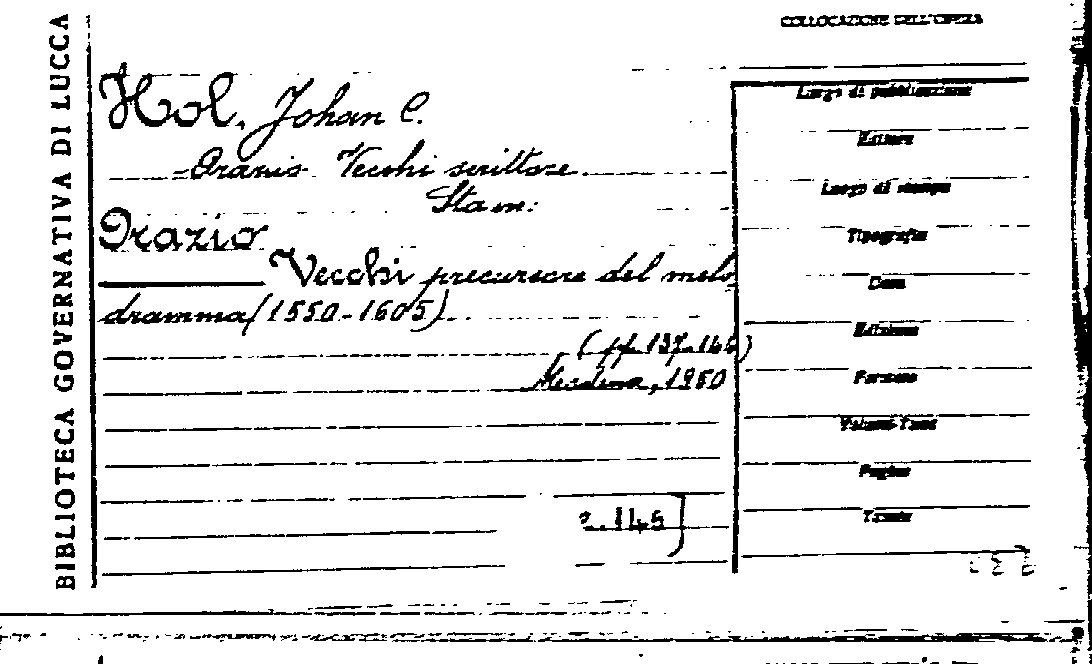 COLLOCAZIONE DELL'OPERA
BIBLIOTECA GOVERNATIVA DI LUCCA
Hol, Johan C.
Orazio Vecchi scrittore
Stam:
Orazio
Vecchi precursore del melo
dramma (1550-1605)
(pp. 137-146)
Modena, 1950
146]
Luogo di pubblicazione
Editore
Luogo di stampa
Tipografia
Data
Edizione
Formato
Volumi-Tomi
Pagine
Tavole